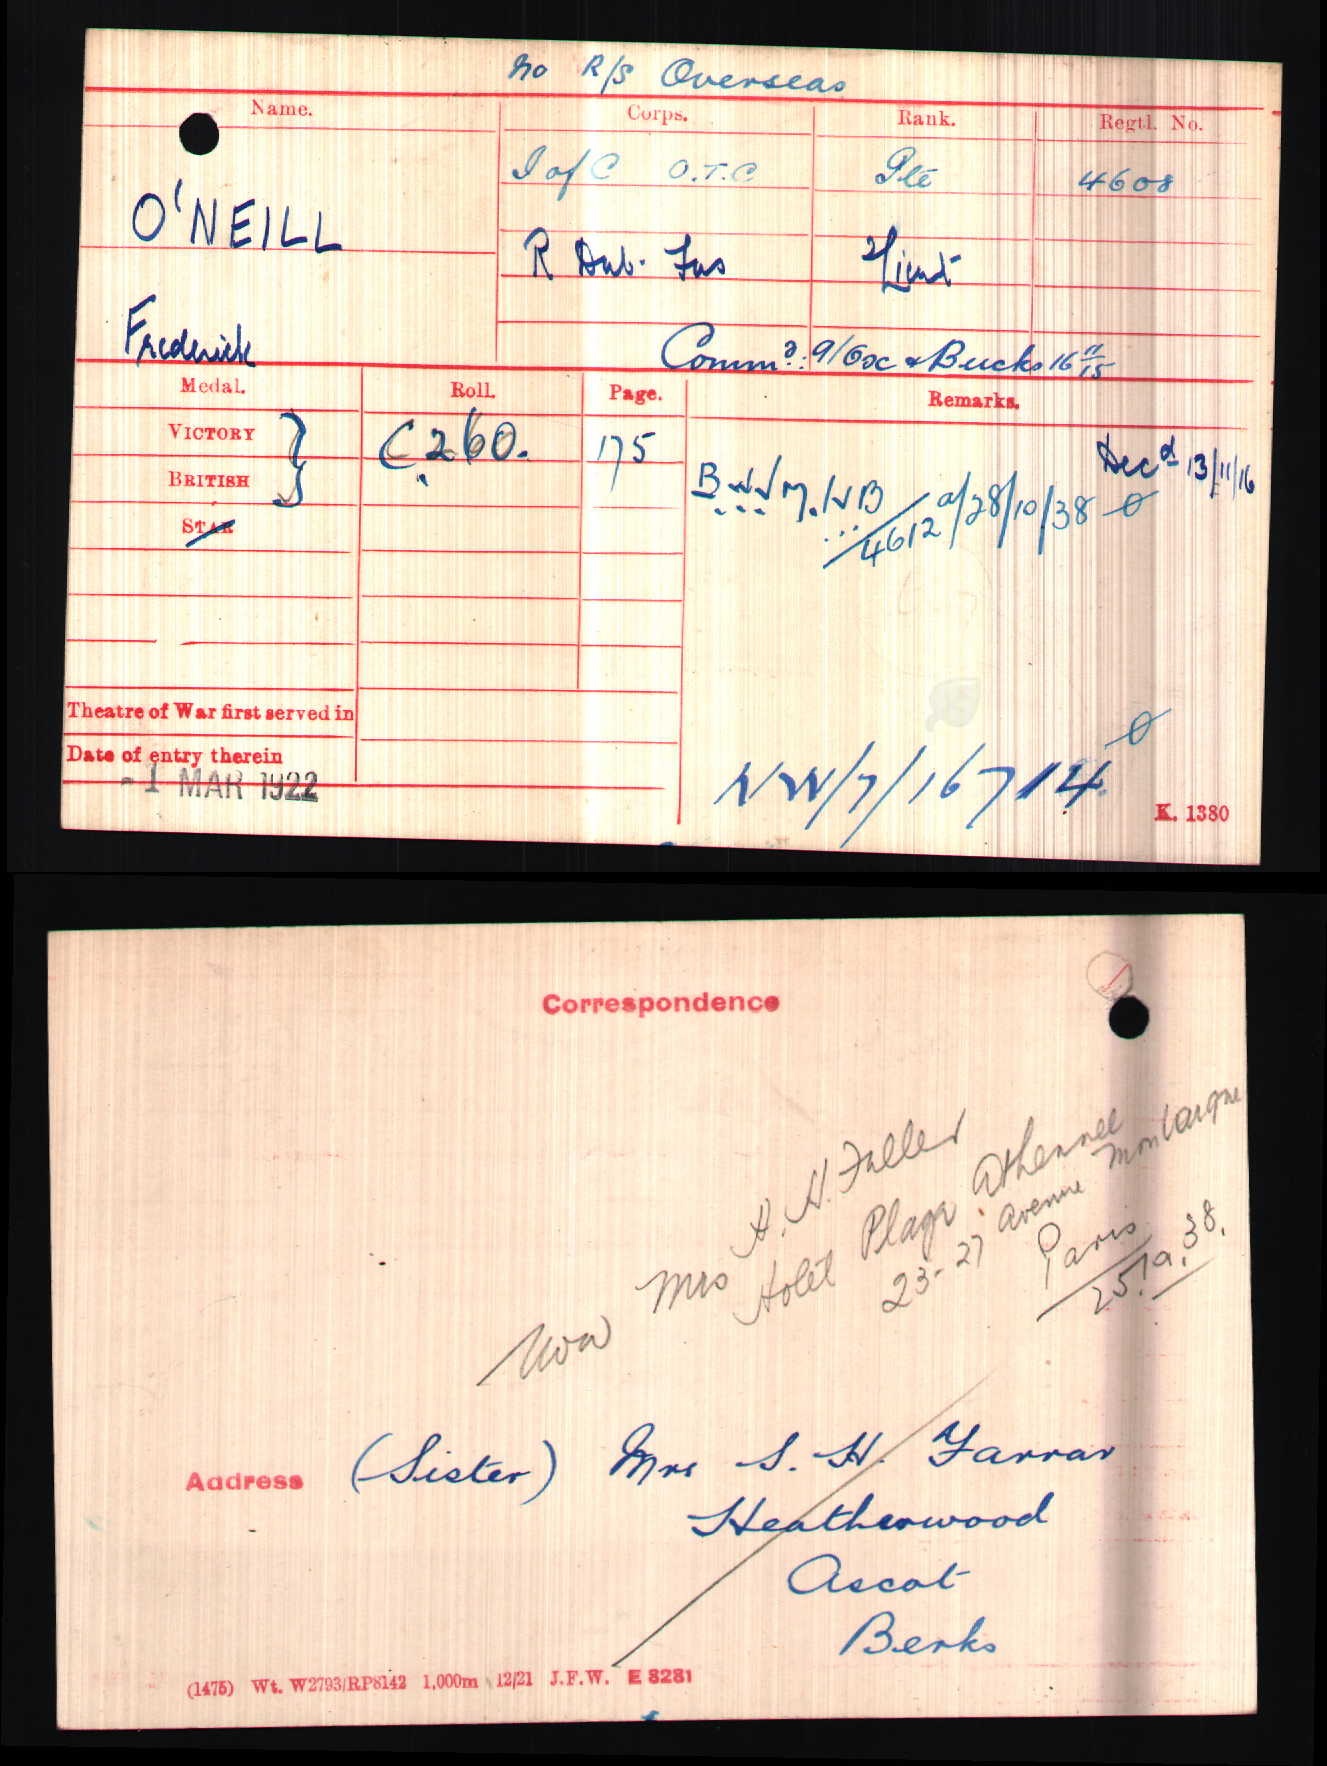 No R/S Overseas
Name. Corps. Rank. Regtl. No.
I of C O.T.C Pte 4608
O'NEILL
R Dub. Fus 2/Lieut
Frederick
Commd: 9/Ox & Bucks 16 11/15
Medal. Roll. Page. Remarks.
VICTORY C 260. 175 Decd 13/11/16
BRITISH
STAR
4612 a/28/10/38
Theatre of War first served in
Date of entry therein
- 1 MAR 1922
NW/7/16714
K. 1380
Correspondence
Now Mrs H. H. Fuller
Hotel Plaza Athennee
23-27 Avenue Montaigne
Paris
Address (Sister) Mrs S. H. Farrar
Heatherwood
Ascot
Berks
(1475) Wt. W2793/RP8142 1,000m 12/21 J.F.W. E 8281